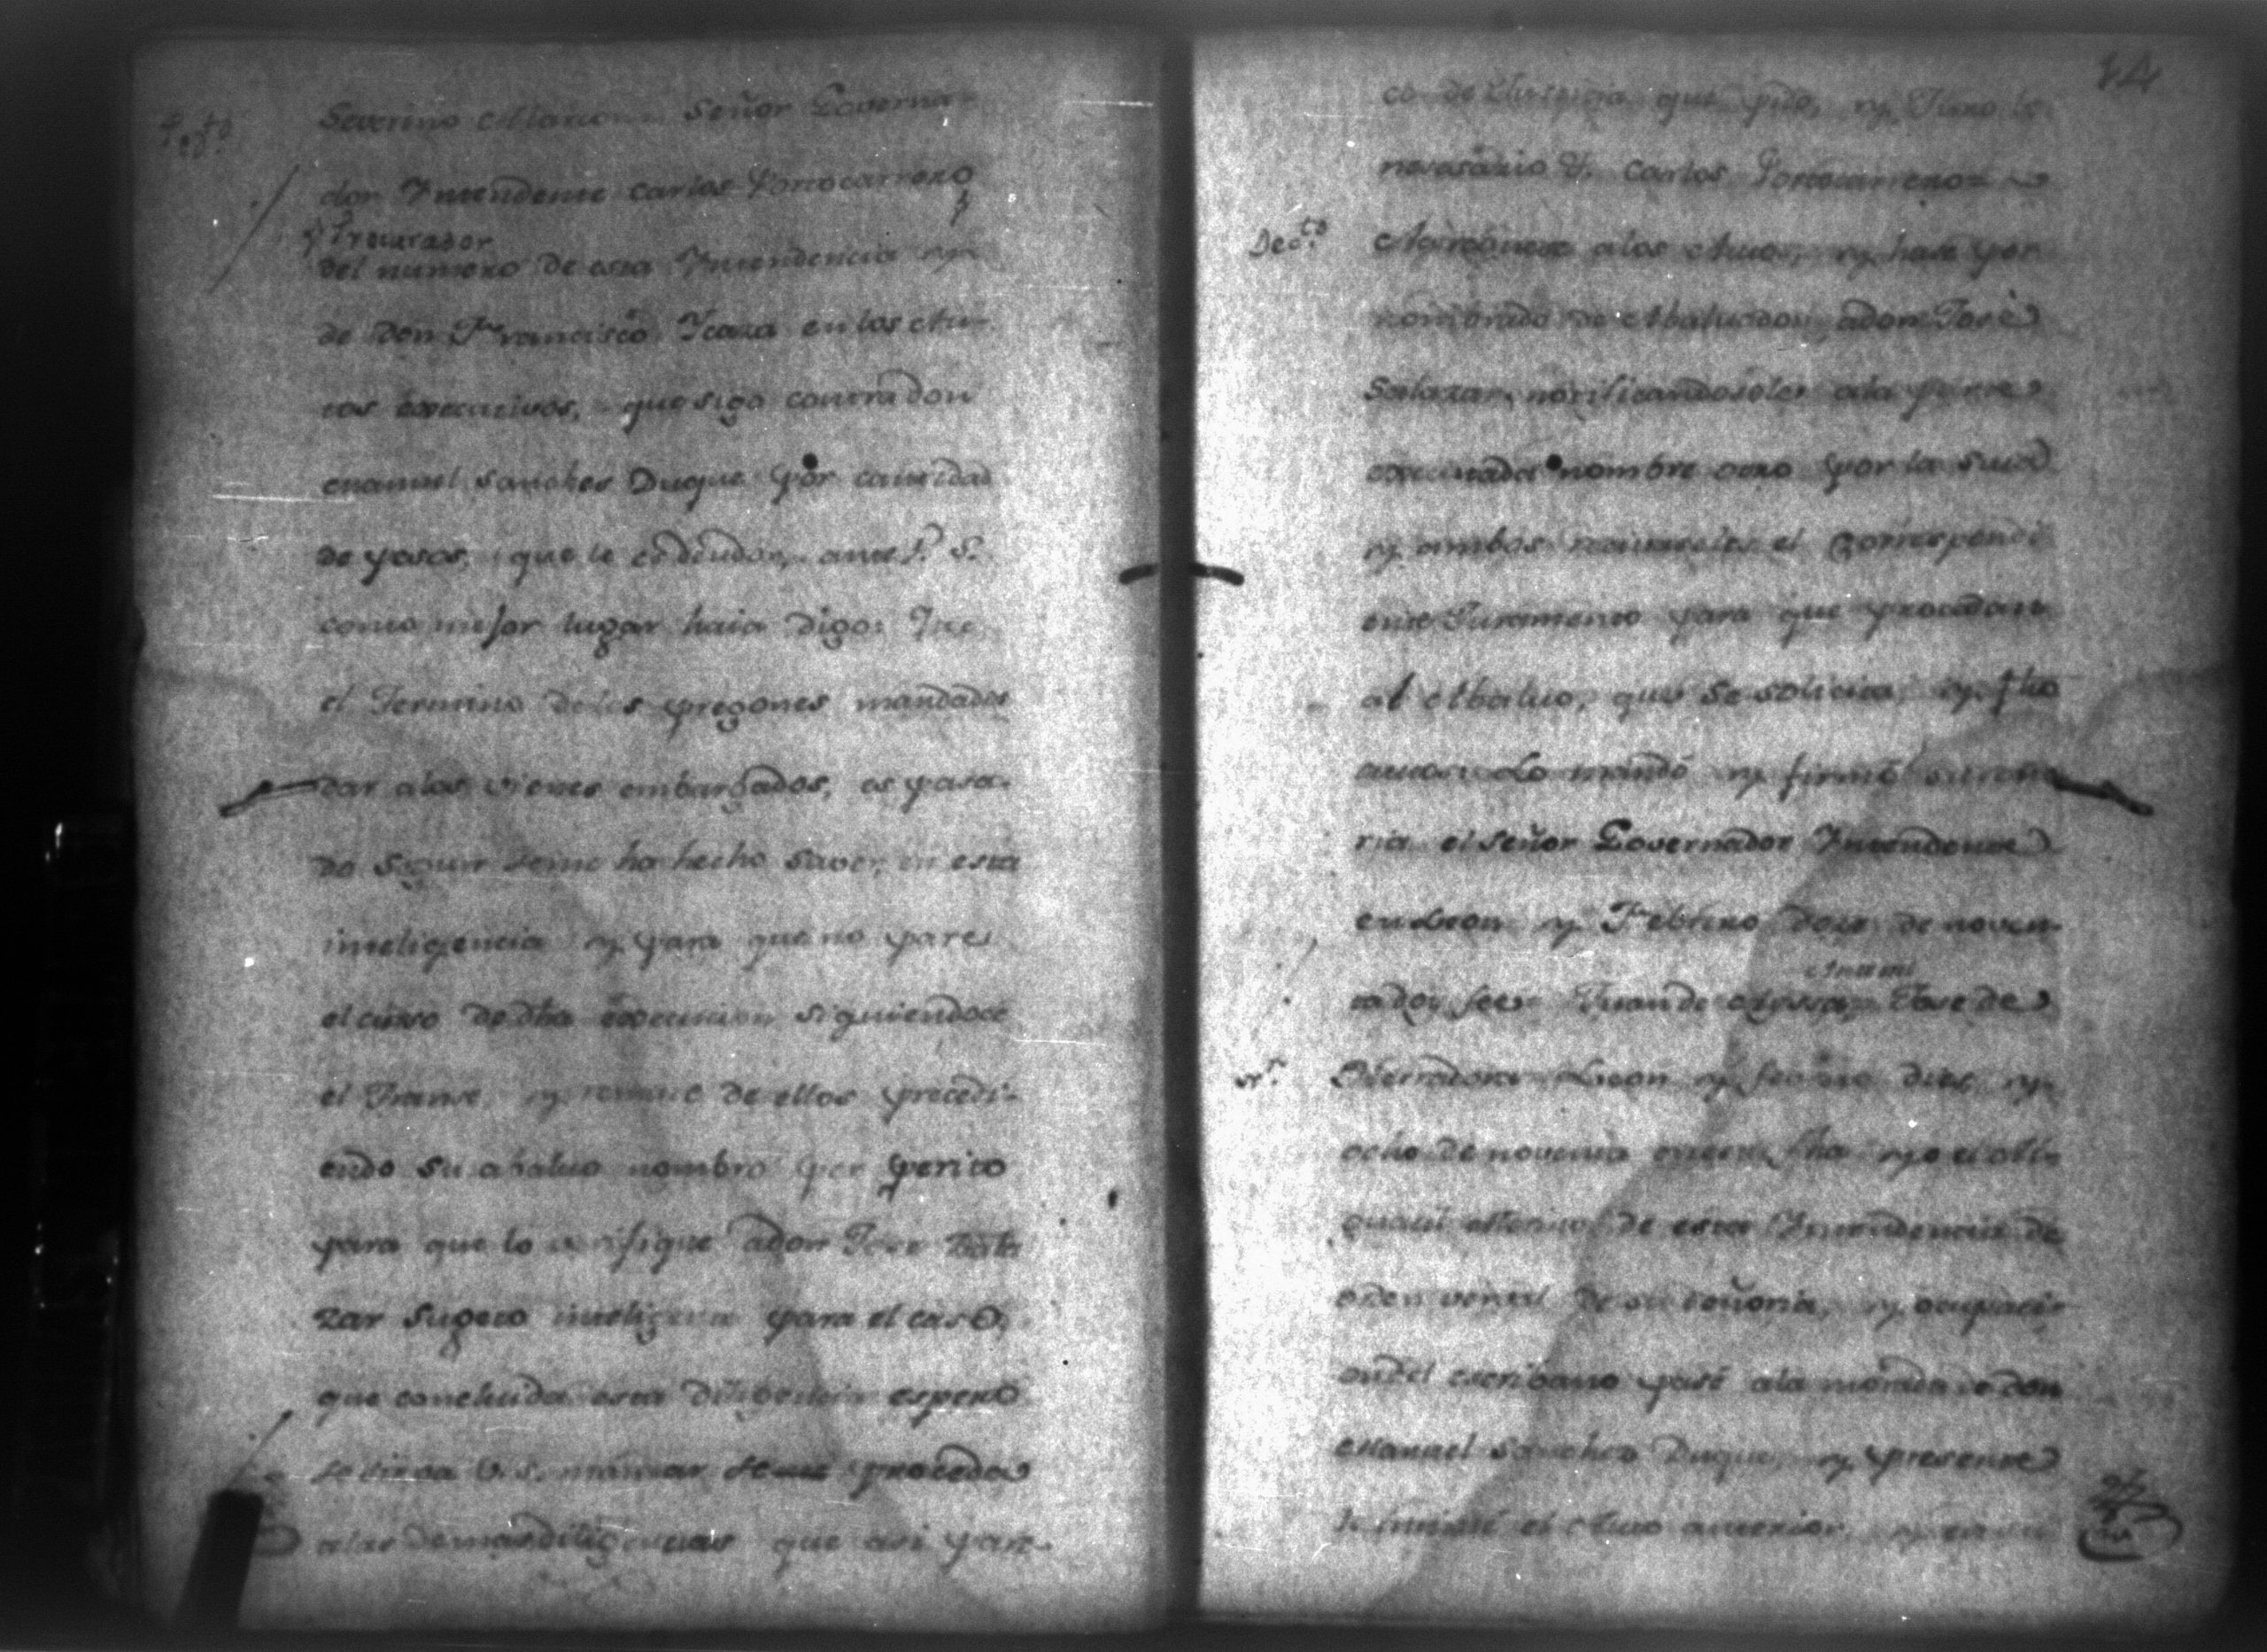 Severino Señor Governa-
Pedto
dor Yntendente Carlos Portocarrero
Procurador
del numero de esta Yntendencia y
de Don Francisco Ycaza en los Au-
tos executivos, que sigo contra don
Manuel Sanches Duque por cantidad
de pesos, que le es deudor, ante V. S.
como mejor lugar haia digo: Que
el Termino de los pregones mandados
dar alos vienes embargados, es pasa-
do segun seme ha hecho saver, en esta
inteligencia y para que no pare
el curso de dha execucion siguiendose
el Transe, y remate de ellos precedi-
endo su abaluo nombro por perito
para que lo verifique adon Jose Sala
zar sugeto inteligente para el caso,
que concluida esta diligencia espero
se sirva V. S. mandar se proceda
alas demas diligencias que asi es par-
14
que pido, y Juro lo
necesario &. Carlos Portocarrero=
Decto. Agreguese alos Autos, y hase por
nombrado de Abaluador adon José
Salazar, notificandosele ala parte
executada nombre otro por la suia
y ambos el correspondi
ente Juramento para que procedan
al Abaluo, que se solicita, y fho
autos. Lo mandó y firmó su seño
ria el señor Governador Yntendente
en Leon y Febrero doze de noven-
Antemi
ta doy fee= Juan de Ayssa, Jose de
Leon y febrero dies y
ocho de noventa yo el Al-
guacil de esta Yntendencia de
orden verval de su señoria, y ocupaci-
on del escribano pasé ala morada de don
Manuel Sanches Duque, y presente
le el Auto anterior, y en su